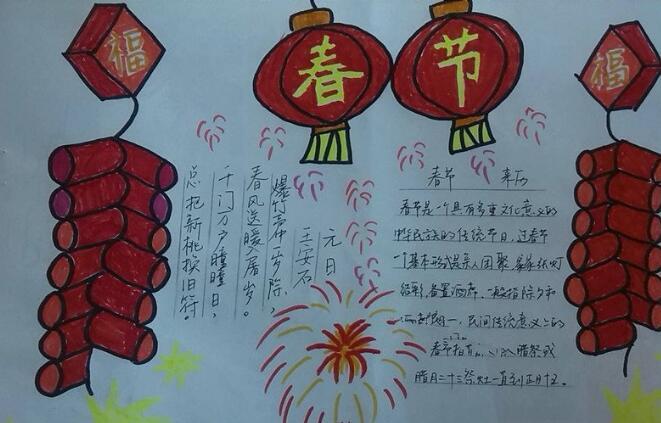 福
春节
福
元日
王安石
爆竹声中一岁除，
春风送暖入屠岁。
千门万户瞳瞳日，
总把新桃换旧符。
春节 来历
春节是一个具有多重文化意义的
中华民族的传统节日，过春节
一个基本形式是亲人团聚
备置酒席，一般指除夕和
正月初一，民间传统意义上的
春节指 腊祭或
腊月二十三祭灶一直到正月十五。